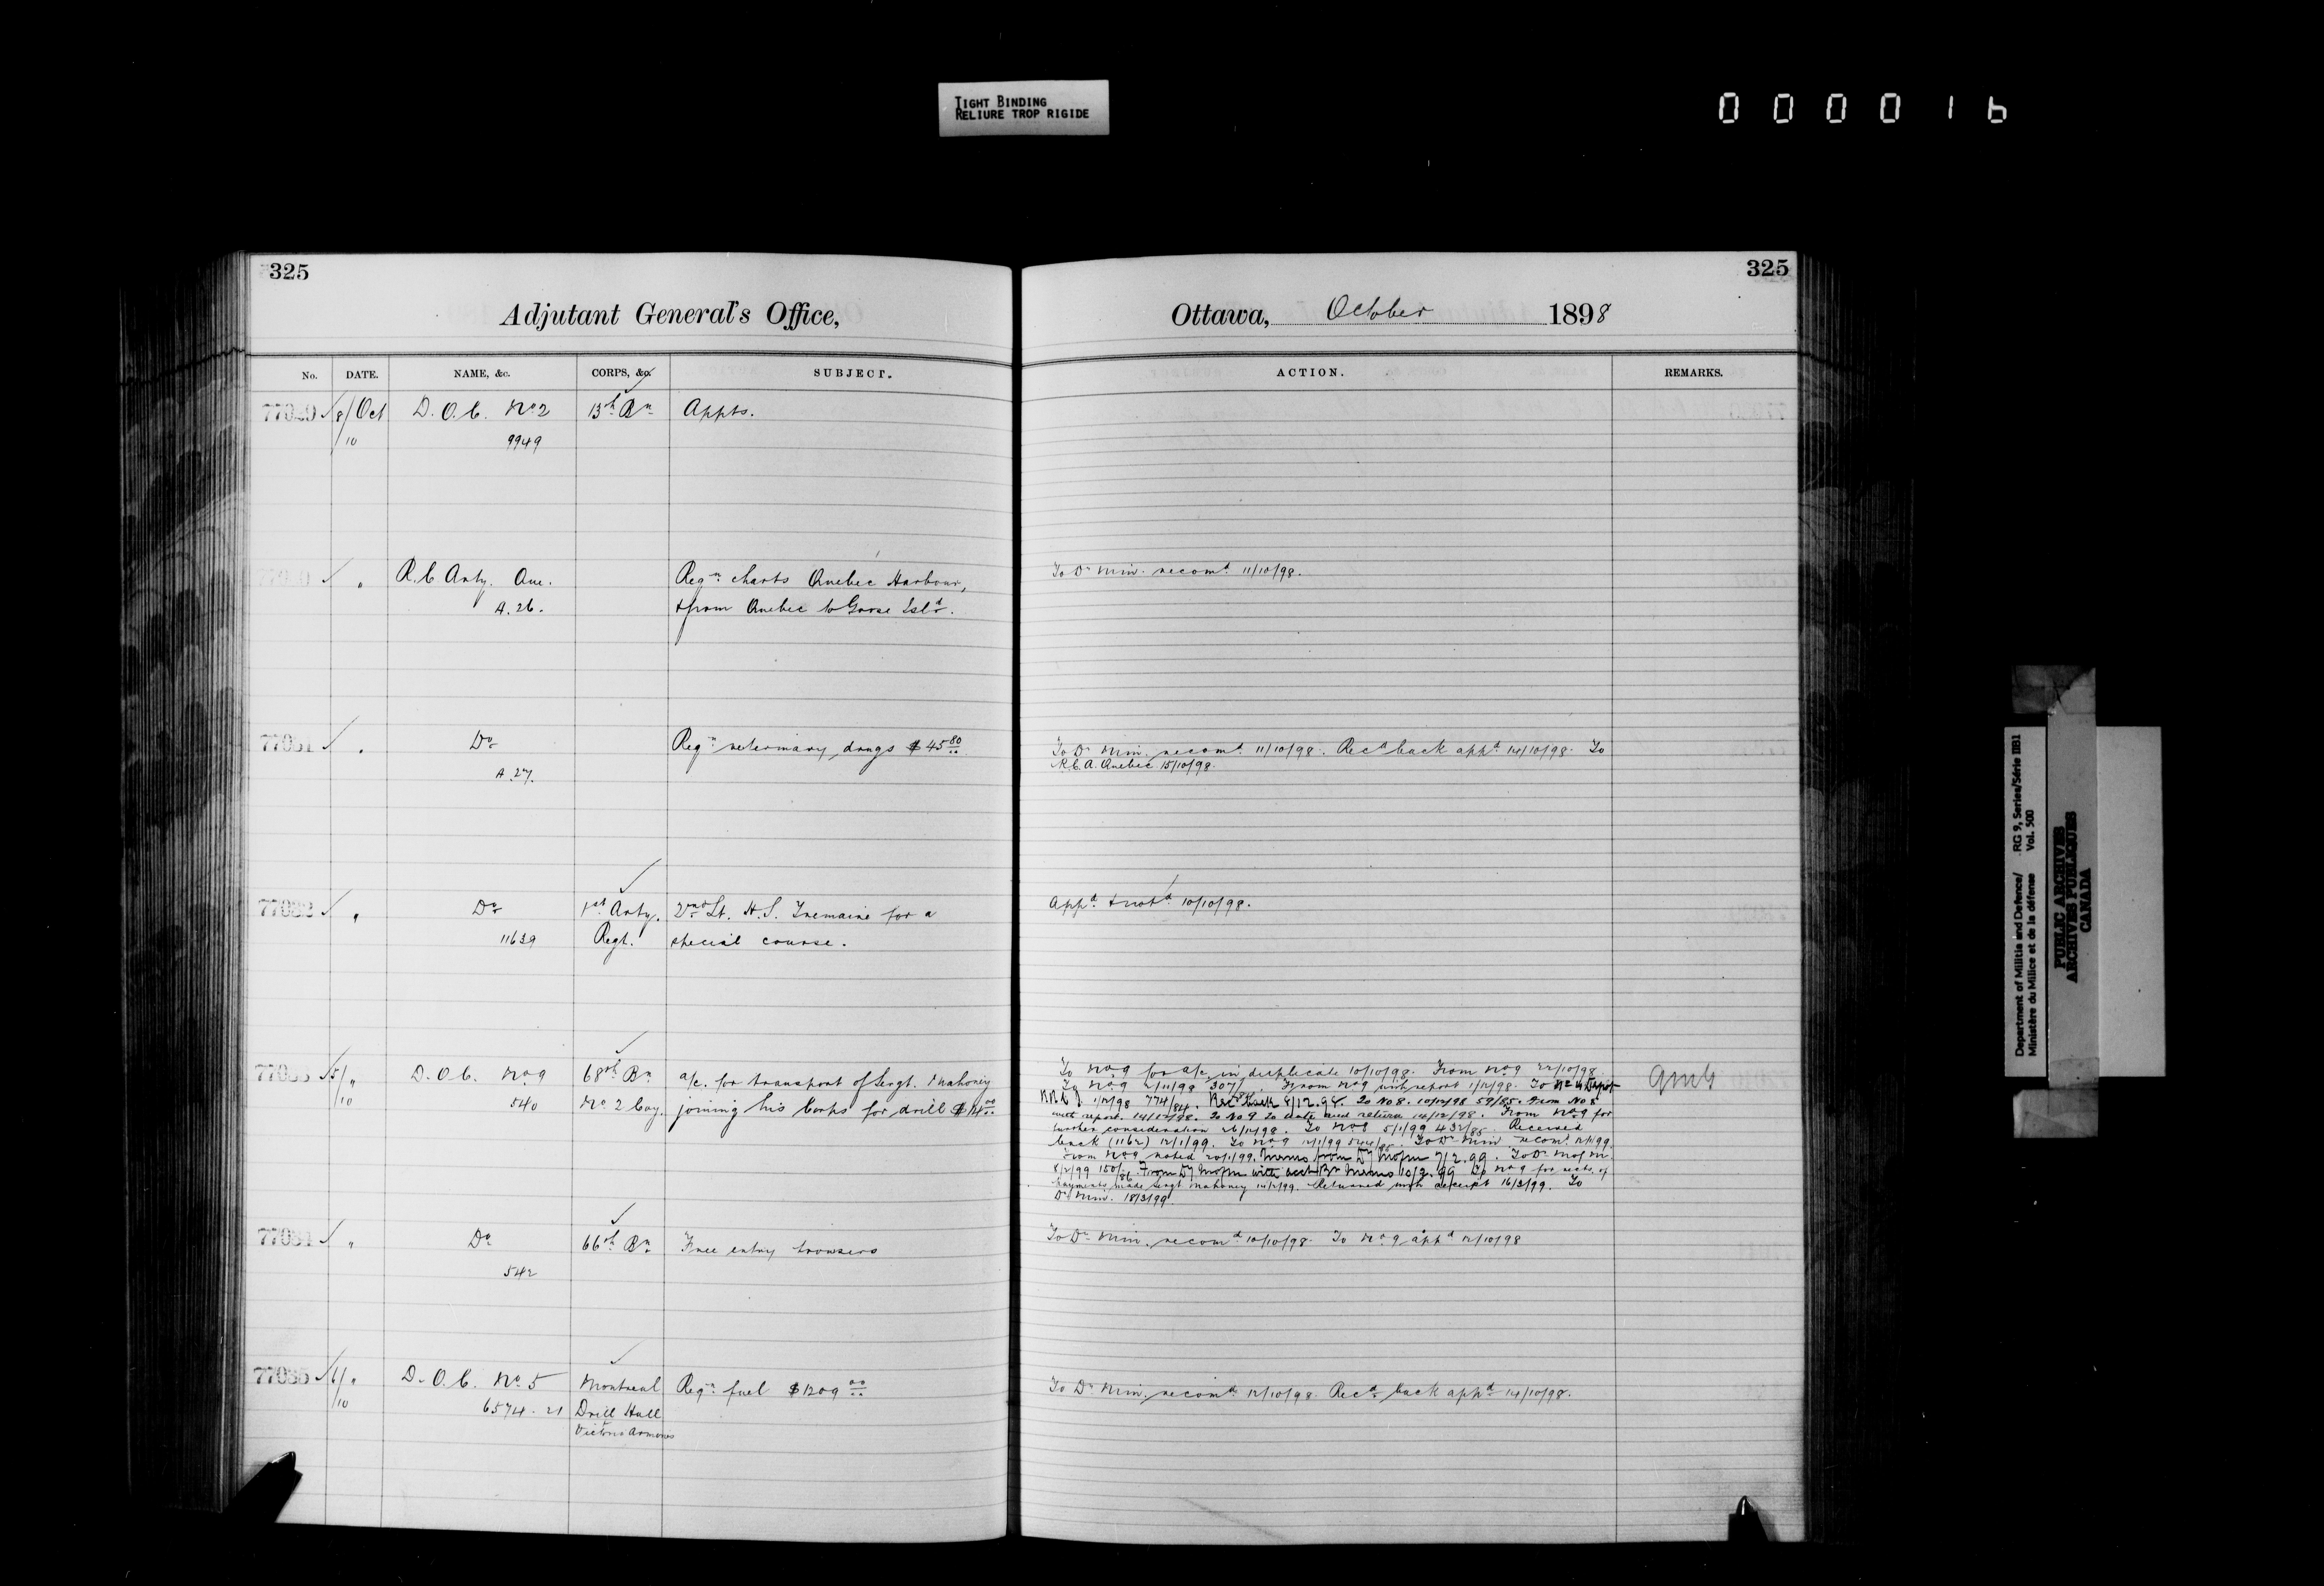 TIGHT BINDING
RELIURE TROP RIGIDE
0 0 0 0 1 6
325
Adjutant General's Office,
No. DATE. NAME, &c. CORPS, &c. SUBJECT.
8/10 Oct D.O.C. No 2 13th Bn Appts.
9949
" R.C. Arty. Que. Reqn charts Quebec Harbour,
A. 26. & from Quebec to Goose Isld.
77031 " Do Reqn veterinary drugs $45 80
A. 27.
77032 " Do 1st Arty. 2nd Lt. H.S. Tremaine for a
11639 Regt. special course.
77033 5/10 " D.O.C. No 9 68th Bn a/c. for transport of Sergt. Mahoney
540 No 2 Coy. joining his Corps for drill $14 00
77034 " Do 66th Bn Free entry trousers
542
77035 6/10 " D.O.C. No 5 Montreal Reqn fuel $1209 00
6574-21 Drill Hall
Victoria Armories
325
Ottawa, October 1898
ACTION. REMARKS.
To Dr Min. recomd 11/10/98.
To Dr Min. recomd 11/10/98. Recd back appd 14/10/98. To
R.C.A. Quebec 15/10/98.
Appd & notd 10/10/98.
To No 9 for a/c in duplicate 10/10/98. From No 9 22/10/98.
To No 9 From No 9 with report 1/12/98. To
1/12/98 774/84. Recd back 8/12.98. To No 8. 10/12/98 59/85. From No 8
with report. 14/12/98. To No 9 to state and return 14/12/98. From No 9 for
further consideration 26/12/98. To No 9 5/1/99 432/85. Received
back (1162) 12/1/99. To No 9 To Dr Min. recomd
From No 9 noted 20/1/99. Memo from 7/2.99. To
8/2/99 From with acct 10/2.99 To No 9 for rects. of
payments made Sergt Mahoney Returned with receipt 16/3/99. To
Dr Min. 18/3/99
To Dr Min. recomd 10/10/98. To No 9 appd 12/10/98
To Dr Min. recomd 12/10/98. Recd back appd 14/10/98.
Department of Militia and Defence/ RG 9, Series/Série IIB1
Ministère du Milice et de la défense Vol. 500
PUBLIC ARCHIVES
ARCHIVES PUBLIQUES
CANADA